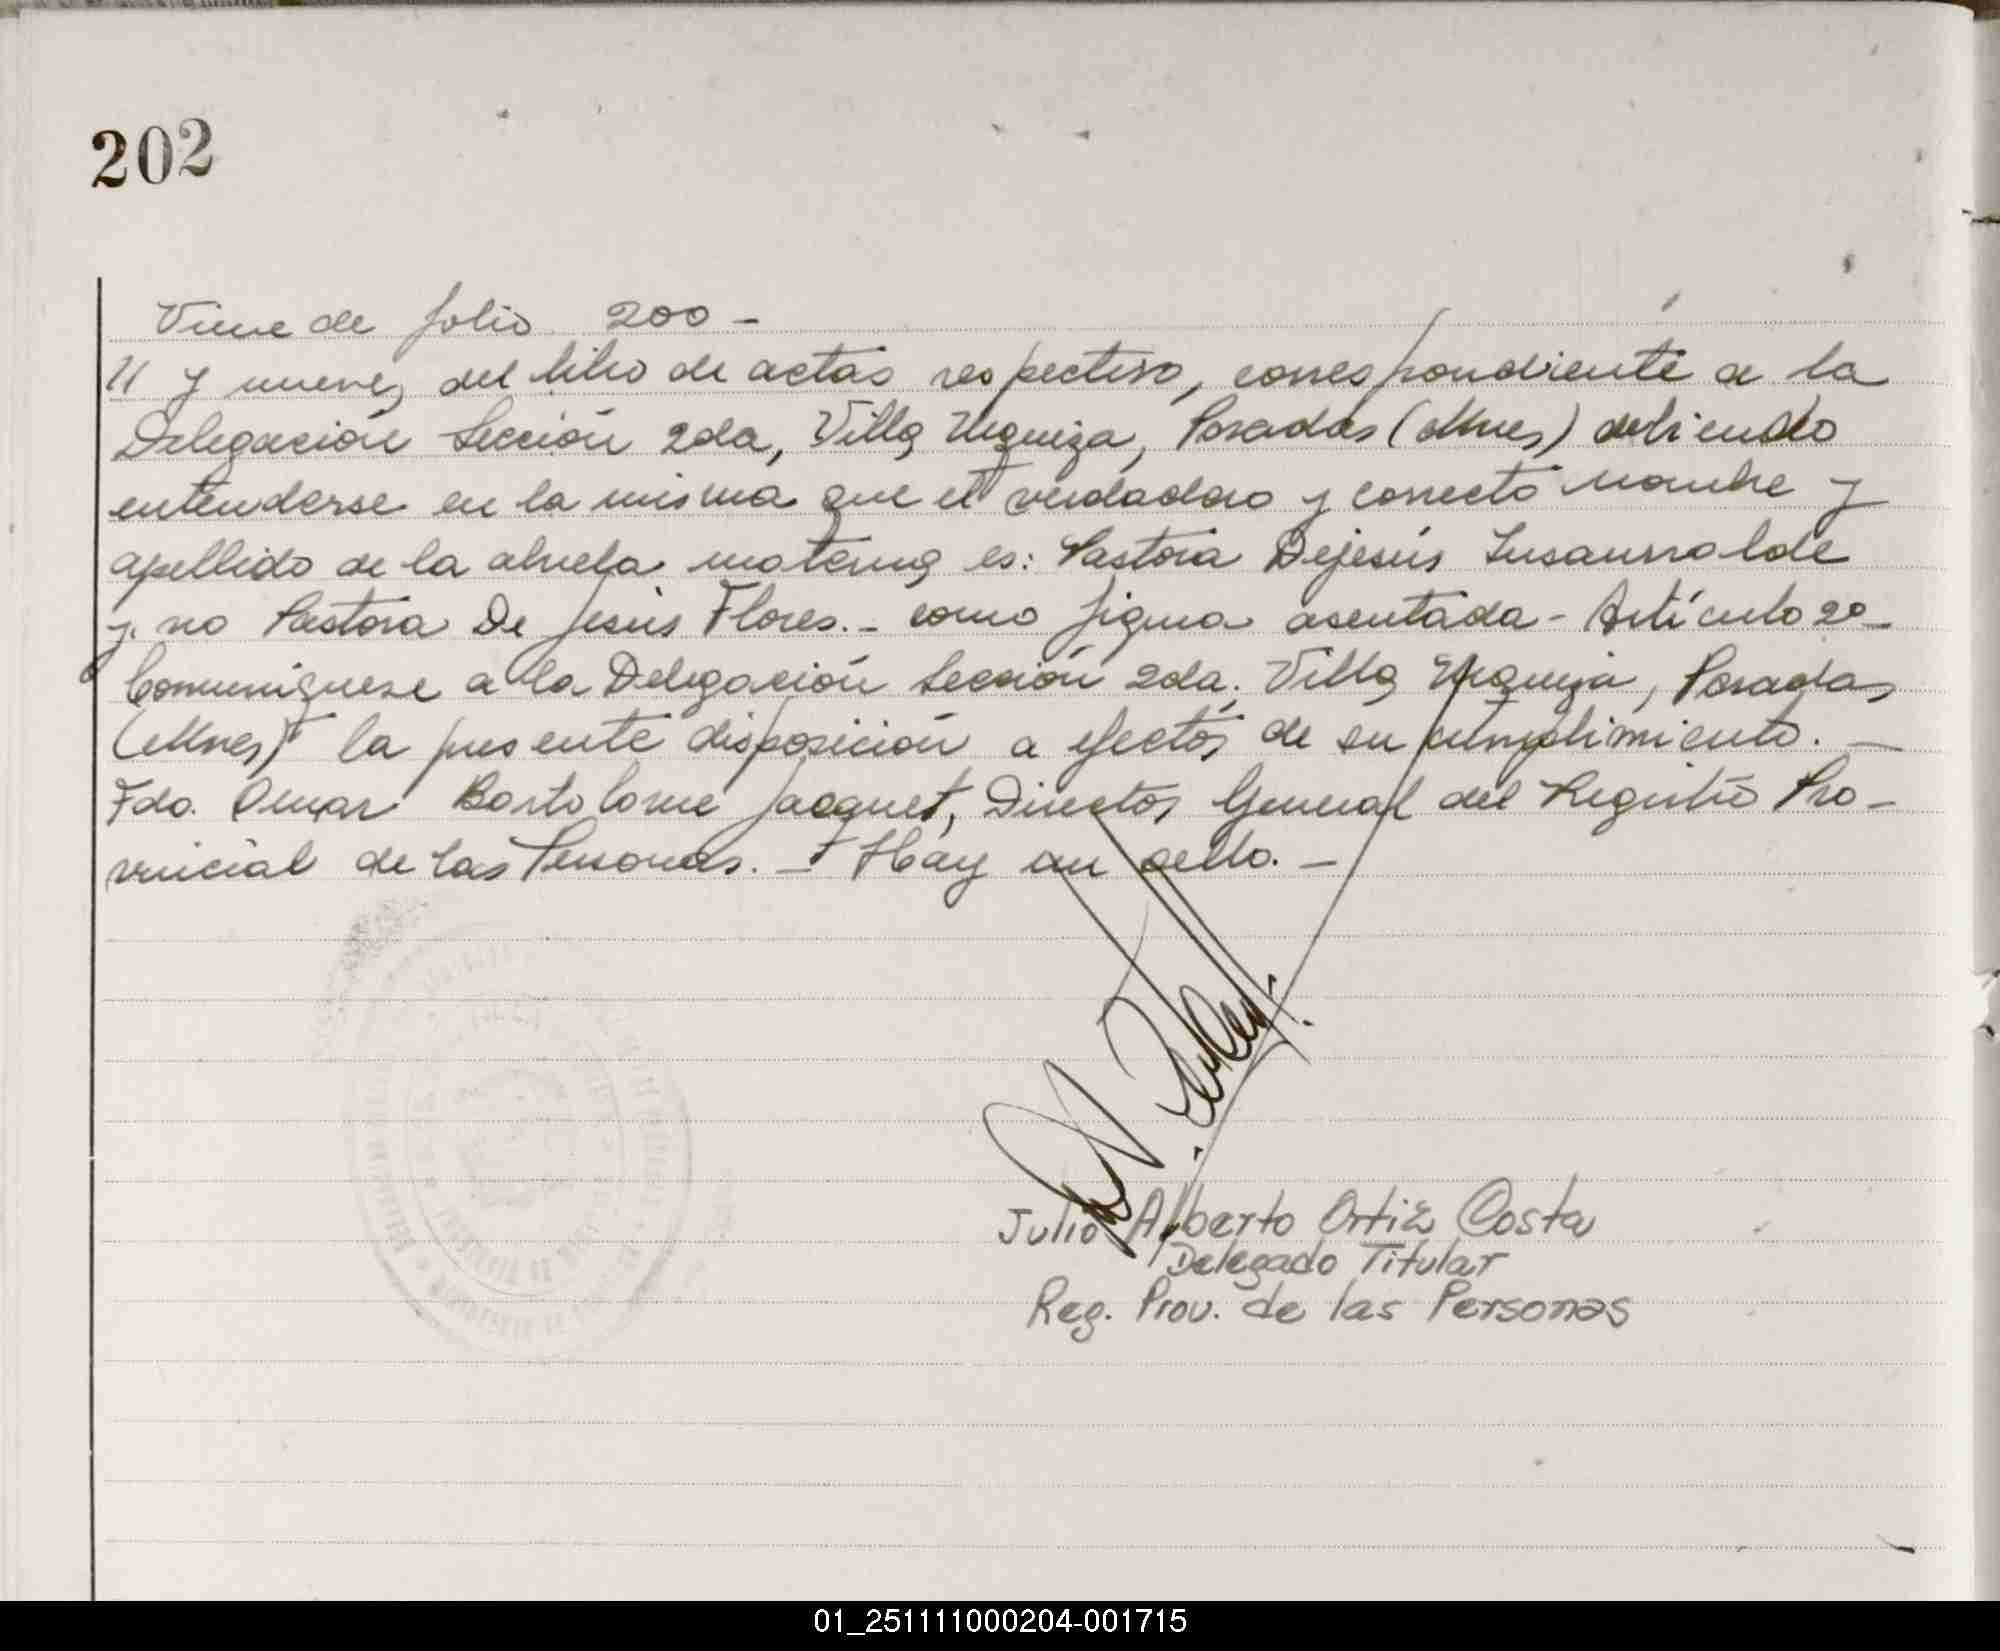 202
Viene de folio 200 -
// y nueve, del libro de actas respectivo, correspondiente a la
Delegación Sección 2da, Villa Urquiza, Posadas (Mnes) debiendo
entenderse en la misma que el verdadero y correcto nombre y
apellido de la abuela materna es: Pastora Dejesús Insaurralde
y no Pastora De Jesús Flores.- como figura asentada - Artículo 2º-
Comuníquese a la Delegación Sección 2da. Villa Urquiza, Posadas
(Mnes) la presente disposición a efectos de su cumplimiento. -
Fdo. Omar Bartolome Jacquet, Director General del Registro Pro-
vincial de las Personas. - Hay un sello. -
Julio Alberto Ortiz Costa
Delegado Titular
Reg. Prov. de las Personas
01_251111000204-001715